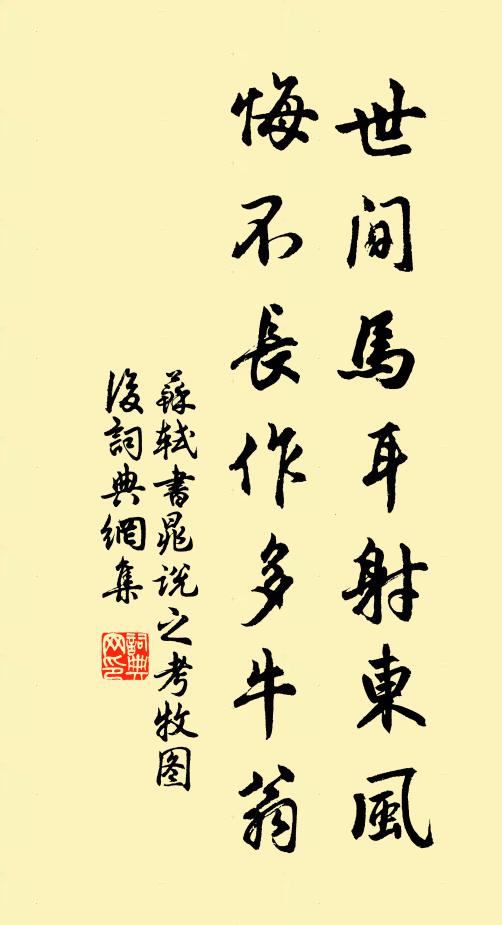 世间馬耳射東風
悔不長作多牛翁
蘇軾書晁說之考牧图
後詞典網集
詞典网印